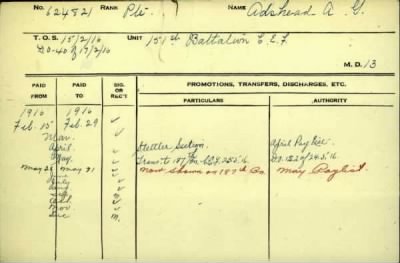 No. 624821 RANK Pte. NAME Adshead A. G.
T.O.S. 15/2/16 UNIT 151st Battalion C.E.F.
D.O. 40 of 17/2/16
M.D. 13
PAID FROM PAID TO SIG. OR REC'T PROMOTIONS, TRANSFERS, DISCHARGES, ETC.
PARTICULARS AUTHORITY
1916 1916
Feb. 15 Feb. 29 ✓
Mar. ✓
April ✓ Stettler Section. April Pay List.
May. ✓ Trans. to 187/Bn. C.E.F. 25.5.16
May 26 May 31 ✓ Now shown on 187th Bn. May Paylist.
June ✓
July ✓
Aug ✓
Sep ✓
Oct. ✓
Nov. ✓
Dec M.